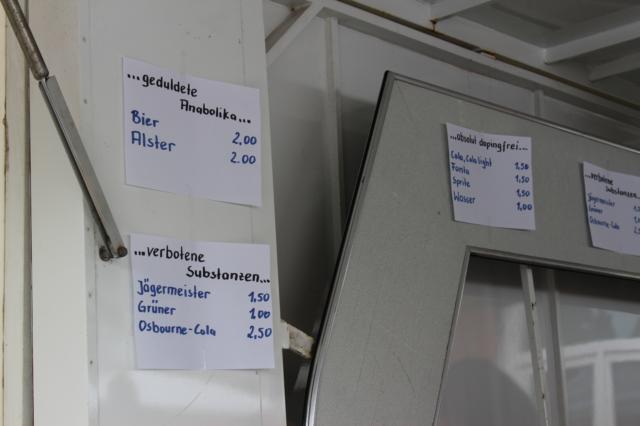 ...geduldete
Anabolika...
Bier 2,00
Alster 2.00
...verbotene
Substanzen...
Jägermeister 1,50
Grüner 1,00
Osbourne-Cola 2,50
...absolut dopingfrei...
Cola, Cola light 1,50
Fanta 1,50
Sprite 1,50
Wasser 1,00
...verbotene
Substanzen...
Jägermeister
Grüner
Osbourne-Cola